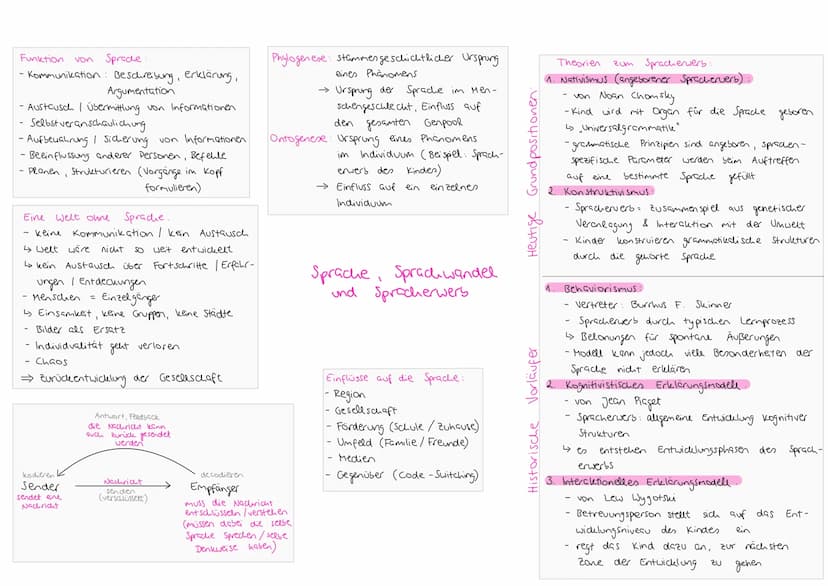 Funktion von Sprache:
- Kommunikation: Beschreibung, Erklärung,
Argumentation
- Austausch / Übermittlung von Informationen
- Selbstveranschaulichung
- Aufbewahrung / Sicherung von Informationen
- Beeinflussung anderer Personen, Befehle
- Planen, Strukturieren (Vorgänge im Kopf
formulieren)
Eine Welt ohne Sprache:
- keine Kommunikation / kein Austausch
↳ Welt wäre nicht so weit entwickelt
↳ kein Austausch über Fortschritte / Erfahr-
ungen / Entdeckungen
- Menschen = Einzelgänger
↳ Einsamkeit, keine Gruppen, keine Städte
- Bilder als Ersatz
- Individualität geht verloren
- Chaos
⇒ Zurückentwicklung der Gesellschaft
Antwort, Feedback
die Nachricht kann
auch zurück gesendet
werden
kodieren
Sender
sendet eine
Nachricht
Nachricht
senden
(verschlüsselt)
decodieren
Empfänger
muss die Nachricht
entschlüsseln / verstehen
(müssen dabei die selbe
Sprache sprechen / selbe
Denkweise haben)
Phylogenese: stammesgeschichtlicher Ursprung
eines Phänomens
→ Ursprung der Sprache im Men-
schengeschlecht, Einfluss auf
den gesamten Genpool
Ontogenese: Ursprung eines Phänomens
im Individuum (Beispiel: Sprach-
erwerb des Kindes)
→ Einfluss auf ein einzelnes
Individuum
Sprache, Sprachwandel
und Spracherwerb
Einflüsse auf die Sprache:
- Region
- Gesellschaft
- Förderung (Schule / Zuhause)
- Umfeld (Familie / Freunde)
- Medien
- Gegenüber (Code-Switching)
Theorien zum Spracherwerb:
Heutige Grundpositionen
1. Nativismus (angeborener Spracherwerb):
- von Noan Chomsky
- Kind wird mit Organ für die Sprache geboren
↳ „Universalgrammatik"
- grammatische Prinzipien sind angeboren, sprachen-
spezifische Parameter werden beim Auftreffen
auf eine bestimmte Sprache gefüllt
2. Konstruktivismus
- Spracherwerb = Zusammenspiel aus genetischer
Veranlagung & Interaktion mit der Umwelt
- Kinder konstruieren grammatikalische Strukturen
durch die gehörte Sprache
Historische Vorläufer
1. Behaviorismus:
- Vertreter: Burrhus F. Skinner
- Spracherwerb durch typischen Lernprozess
↳ Belohnungen für spontane Äußerungen
- Modell kann jedoch viele Besonderheiten der
Sprache nicht erklären
2. Kognitivistisches Erklärungsmodell:
- von Jean Piaget
- Spracherwerb: allgemeine Entwicklung kognitiver
Strukturen
↳ es entstehen Entwicklungsphasen des Sprach-
erwerbs
3. Interaktionelles Erklärungsmodell
- von Lew Wygotski
- Betreuungsperson stellt sich auf das Ent-
wicklungsniveau des Kindes ein
- regt das Kind dazu an, zur nächsten
Zone der Entwicklung zu gehen